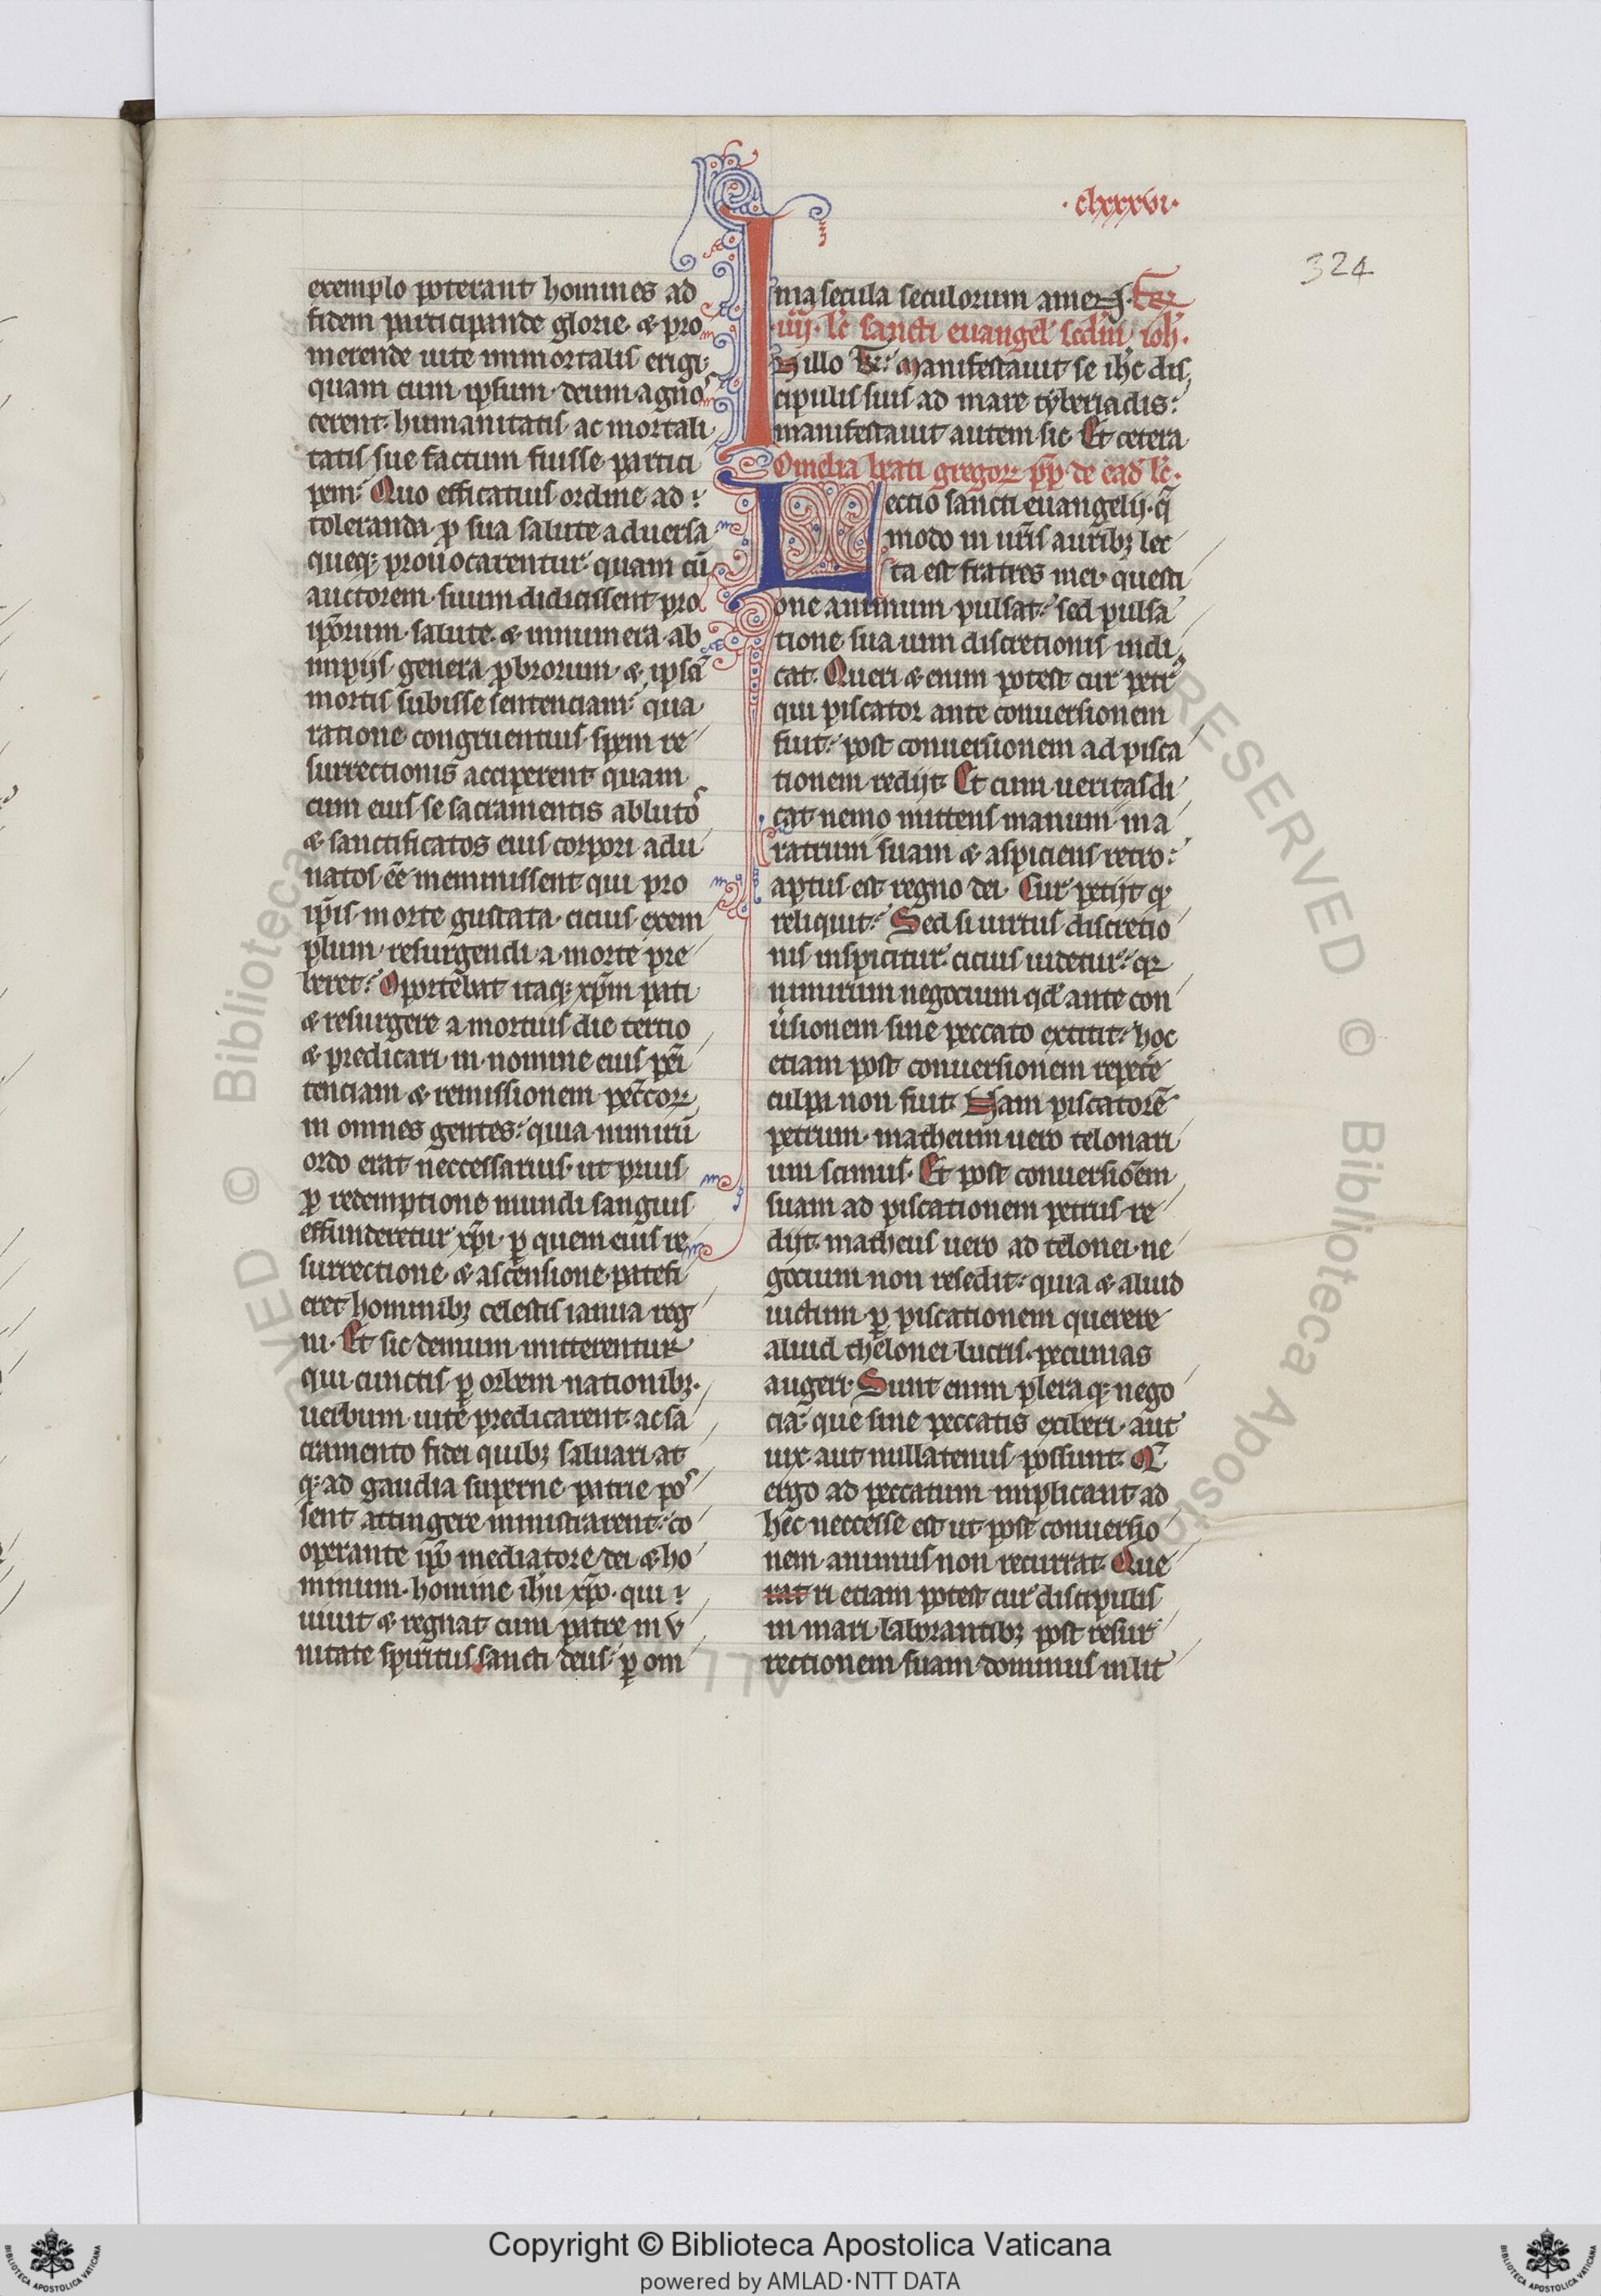 ·clxxxvi·
324
exemplo poterant homines ad
fidem participande glorie· & pro
merende uite inmortalis erigi·
quam cum ipsum deum agnos
cerent· humanitatis ac mortali
tatis sue factum fuisse partici
pem? Quo efficatius ordine ad
toleranda ꝓ sua salute aduersa
queq; prouocarentur· quam cū
auctorem suum didicissent pro
ip̄orum salute· & innumera ab
impijs genera ꝓbrorum· & ipsā
mortis subisse sentenciam? qua
ratione congruentius spem re
surrectionis acciperent quam
cum eius se sacramentis ablutos
& sanctificatos eius corpori adu
natos eē meminissent qui pro
ip̄is morte gustata· cicius exem
plum resurgendi a morte pre
beret? Oportebat itaq; xp̄m pati
& resurgere a mortuis die tertio
& predicari in nomine eius pēi
tenciam & remissionem pec̄coꝝ
in omnes gentes· quia nimirū
ordo erat neccessarius· ut prius
ꝓ redemptione mundi sanguis
effunderetur xp̄i· ꝑ quem eius re
surrectione· & ascensione· patefi
eret hominibꝫ celestis ianua reg
ni· Et sic demum mitterentur
qui cunctis ꝑ orbem nationibꝫ·
uerbum uite predicarent· ac sa
cramento fidei quibꝫ saluari at
q; ad gaudia superne patrie pos
sent attingere ministrarent· co
operante ip̄o mediatore dei & ho
minum· homine ihū xp̄o· qui
uiuit & regnat cum patre in v
nitate spiritus sancti deus· ꝑ om
nia secula seculorum amen· Fer
·iiij· lc̄ sancti euangel' scd̄m ioh̄·
IN illo t̄r· Manifestauit se ih̄c dis
cipulis suis ad mare tyberiadis·
manifestauit autem sic· Et cetera
Omelia beati gregoꝝ pp̄· de ead' lc̄·
Lectio sancti euangelij· q̄
modo in ur̄is auribꝫ lec
ta est fratres mei· questi
one animum pulsat· sed pulsa
tione sua uim discretionis indi
cat· Queri & enim potest cur petrꝰ
qui piscator ante conuersionem
fuit· post conuersionem ad pisca
tionem redijt· Et cum ueritas di
cat nemo mittens manum in a
ratrum suam & aspiciens retro·
aptus est regno dei· Cur petijt qͥ
reliquit? Sed si uirtus discretio
nis inspicitur· cicius uidetur· qꝛ
nimirum negocium qd' ante con
u̓sionem sine peccato extitit· hoc
etiam post conuersionem repetē
culpa non fuit· Nam piscatorē
petrum· matheum uero telonari
um scimus· Et post conuersiōem
suam ad piscationem petrus re
dijt· matheus uero ad telonei ne
gocium non resedit· quia & aliud
uictum ꝑ piscationem querere
aliud thelonei lucris pecunias
augeri· Sunt enim pleraq; nego
cia· que sine peccatis exiberi· aut
uix· aut nullatenus possunt· Q̄
ergo ad peccatum implicant ad
hec neccesse est ut post conuersio
nem animus non recurrat· Que
rat ri etiam potest cur discipulis
in mari laborantibꝫ post resur
rectionem suam dominus in lit
Copyright © Biblioteca Apostolica Vaticana
powered by AMLAD·NTT DATA